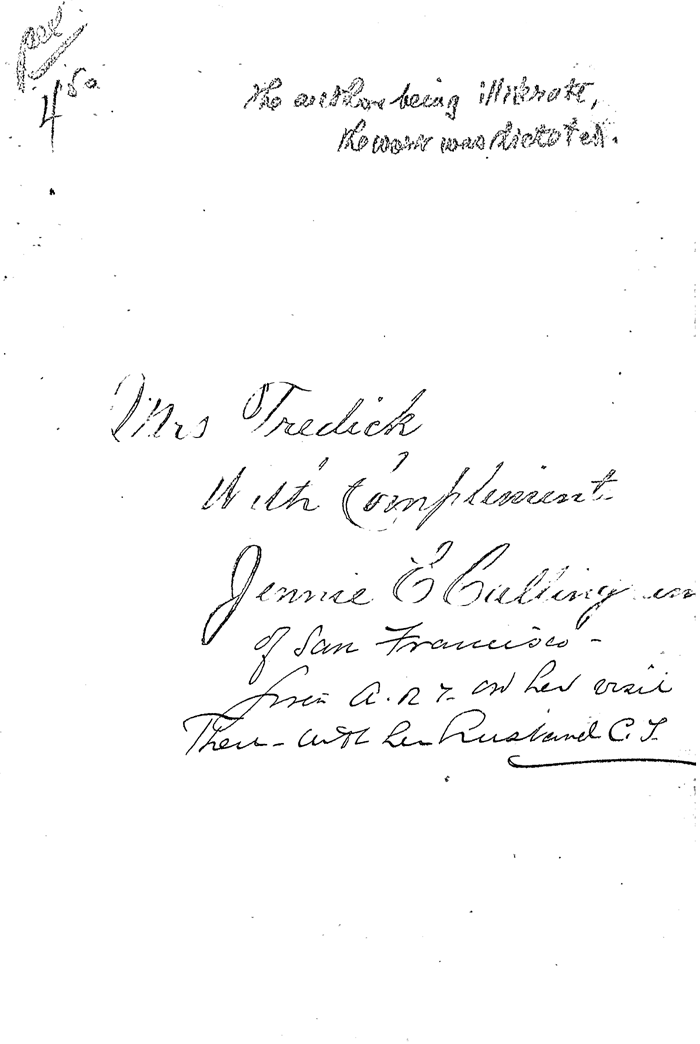 4 50
The author being illiterate,
the work was dictated.
Mrs Tredick
With Compliment
Jennie E
of San Francisco -
from A. R. T. on her visit
There - with her Husband C. T.